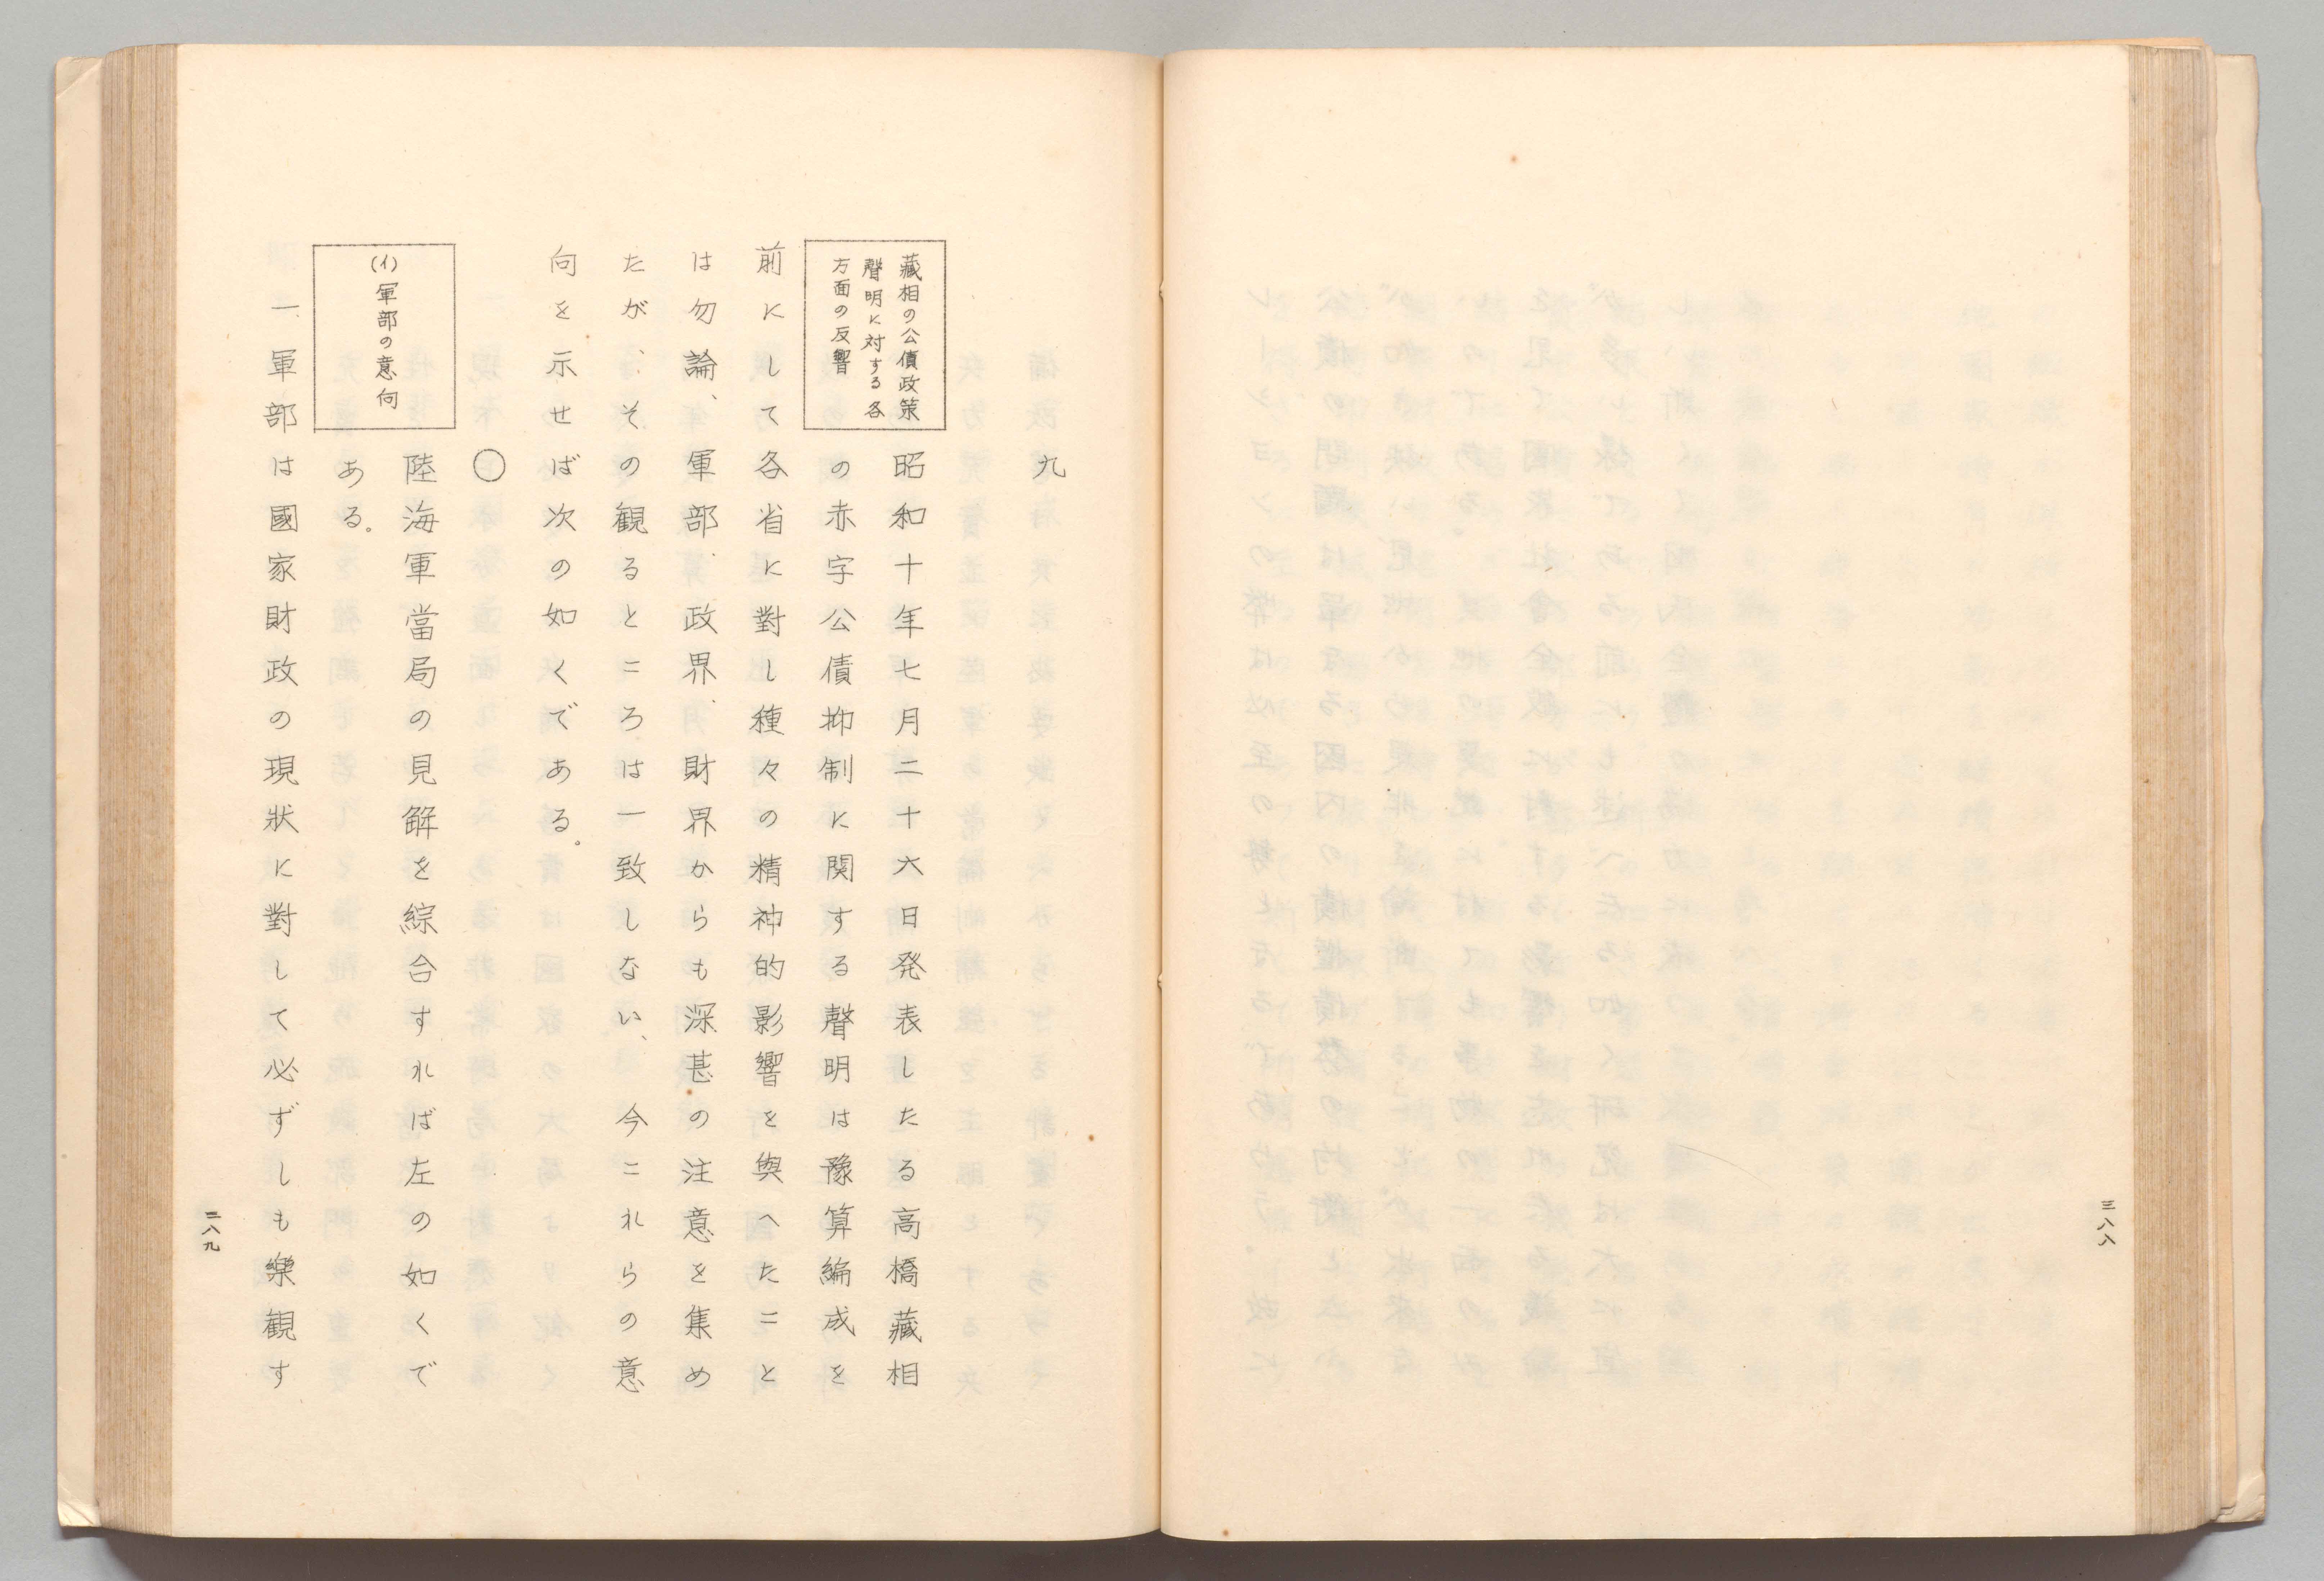 三八八
九
藏相の公債政策
聲明に対する各
方面の反響
昭和十年七月二十六日発表したる高橋藏相
の赤字公債抑制に関する聲明は豫算編成を
前にして各省に對し種々の精神的影響を與へたこと
は勿論、軍部、政界、財界からも深甚の注意を集め
たが、その観るところは一致しない、今これらの意
向を示せば次の如くである。
○
(イ)軍部の意向
陸海軍當局の見解を綜合すれば左の如くで
ある。
一、軍部は國家財政の現狀に對して必ずしも樂観す
二八九